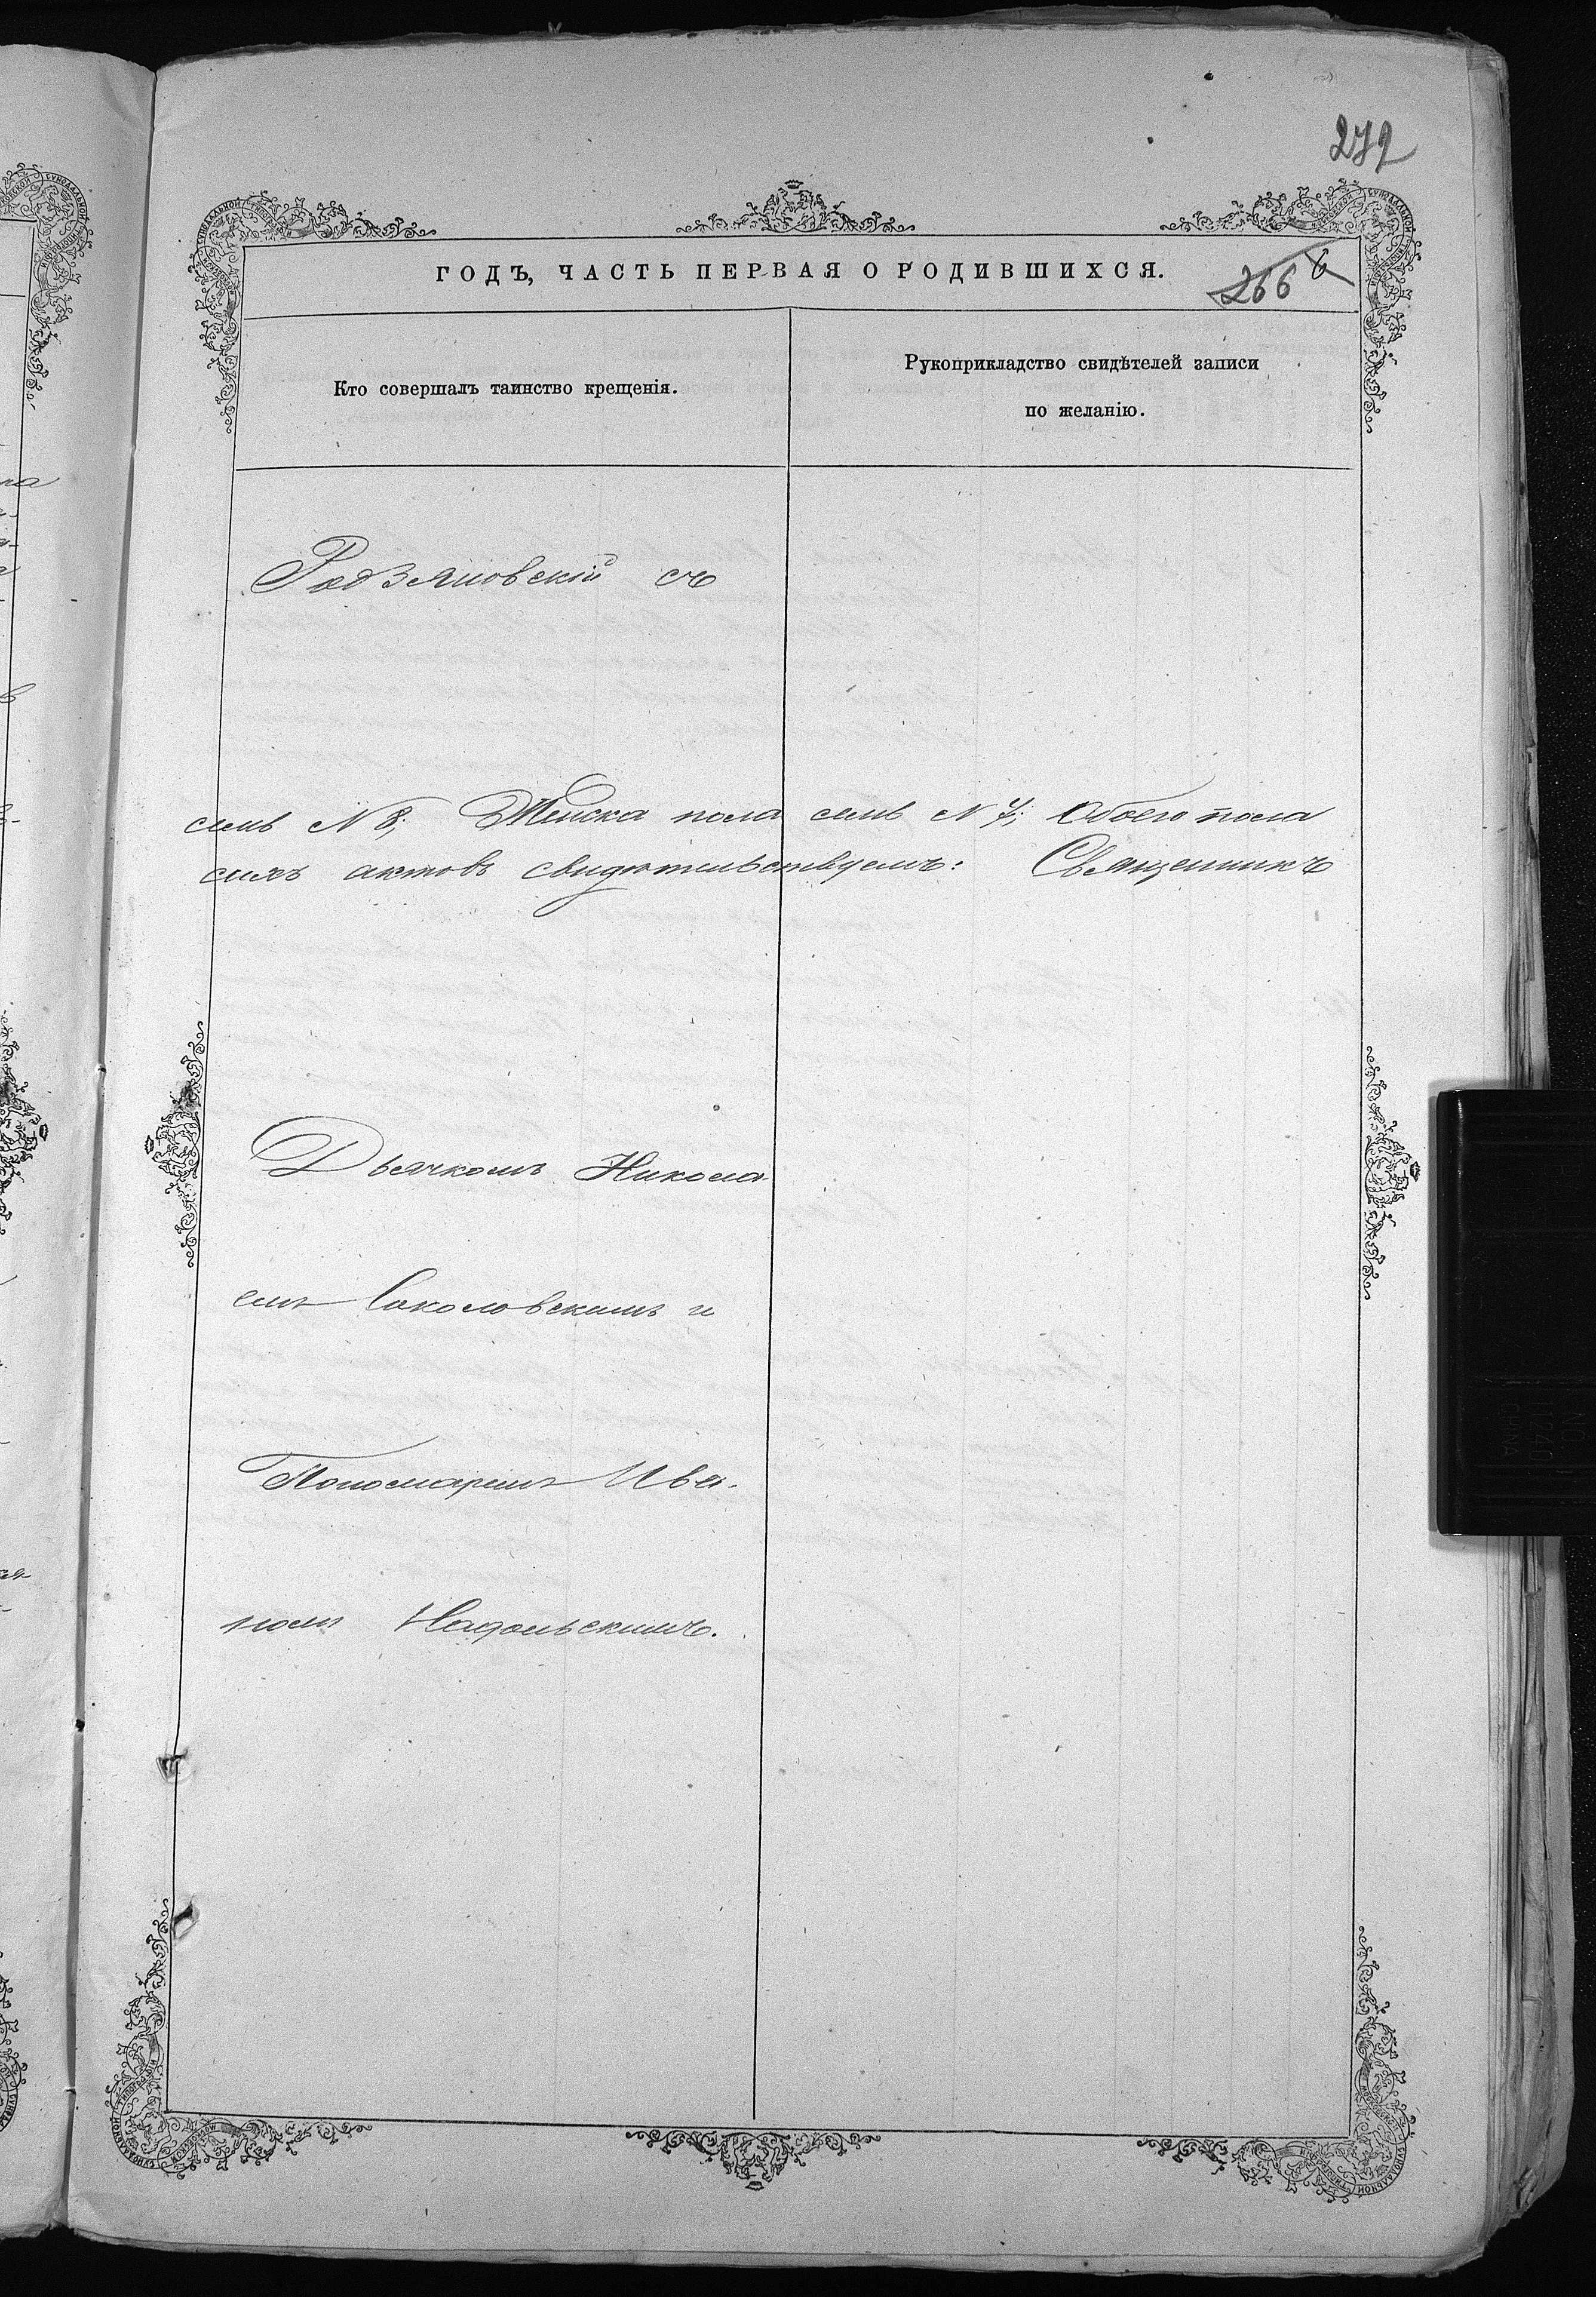 272
ГОДЪ, ЧАСТЬ ПЕРВАЯ О РОДИВШИХСЯ.
266 б
Кто совершалъ таинство крещенія.
Рукоприкладство свидѣтелей записи
по желанію.
Родзяновскій съ
семь N 8; Женска пола семь N 7; Обоего пола
сихъ актовъ свидѣтельствуемъ: Священникъ
Дьячкомъ Никола
емъ Соколовскимъ и
Пономаремъ Ива-
номъ Надольскимъ.